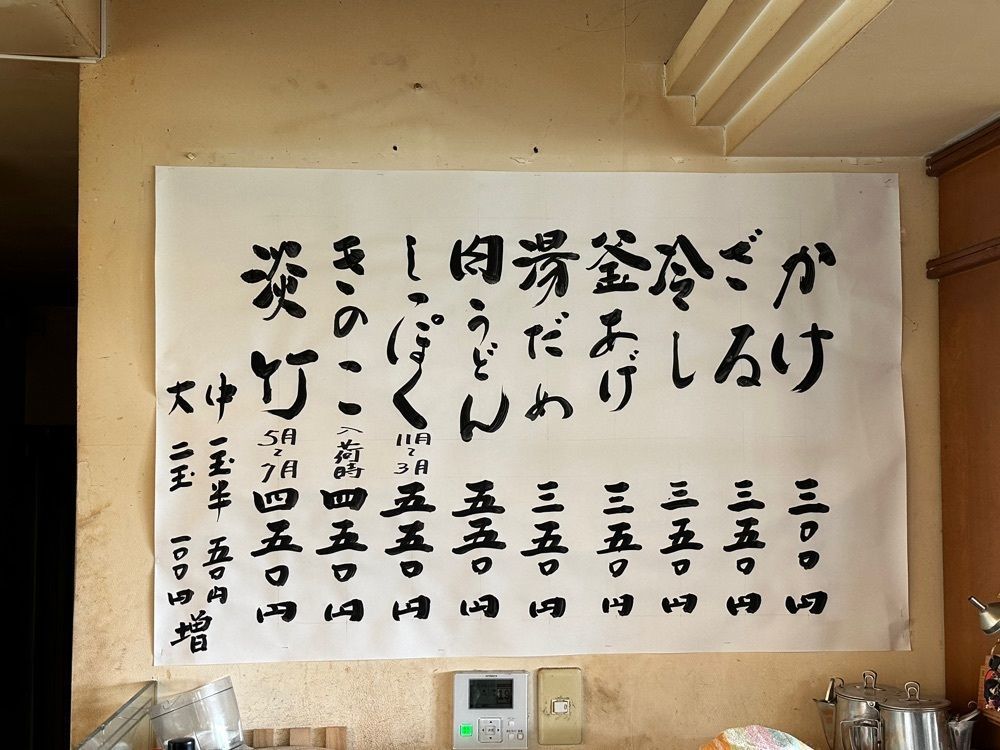 かけ 三〇〇円
ざる 三五〇円
冷し 三五〇円
釜あげ 三五〇円
湯だめ 三五〇円
肉うどん 五五〇円
しっぽく 11月〜3月 五五〇円
きのこ 入荷時 四五〇円
淡竹 5月〜7月 四五〇円
中 一玉半 五〇円
大 二玉 一〇〇円
増